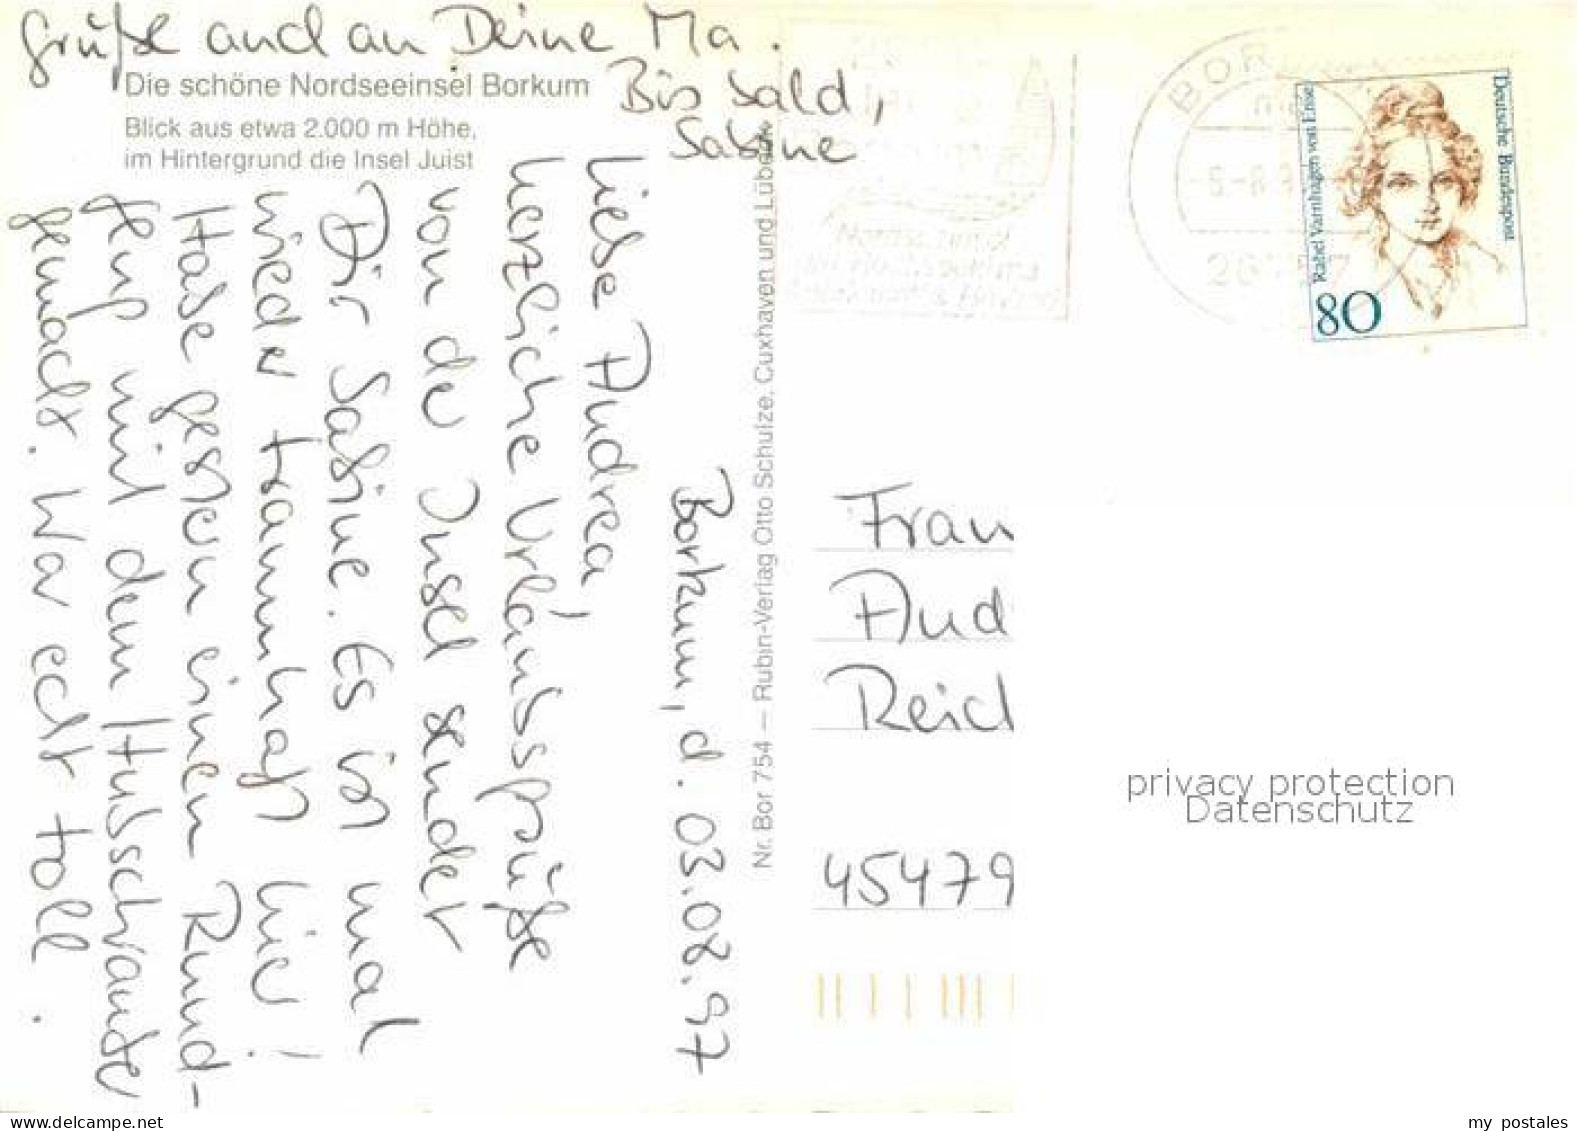 Borkum, d. 03.08.97
Liebe Andrea,
herzliche Urlaubsgrüße
von der Insel sendet
Dir Sabine. Es ist mal
wieder traumhaft hier!
Habe gestern einen Rund-
flug mit dem Hubschrauber
gemacht. War echt toll.
Grüße auch an Deine Ma.
Bis bald,
Sabine
Die schöne Nordseeinsel Borkum
Blick aus etwa 2.000 m Höhe,
im Hintergrund die Insel Juist
Nr. Bor 754 — Rubin-Verlag Otto Schulze, Cuxhaven und Lübeck
BOR
Deutsche Bundespost
Rahel Varnhagen von Ense
80
Frau
And
Reich
45479
privacy protection
Datenschutz
my postales